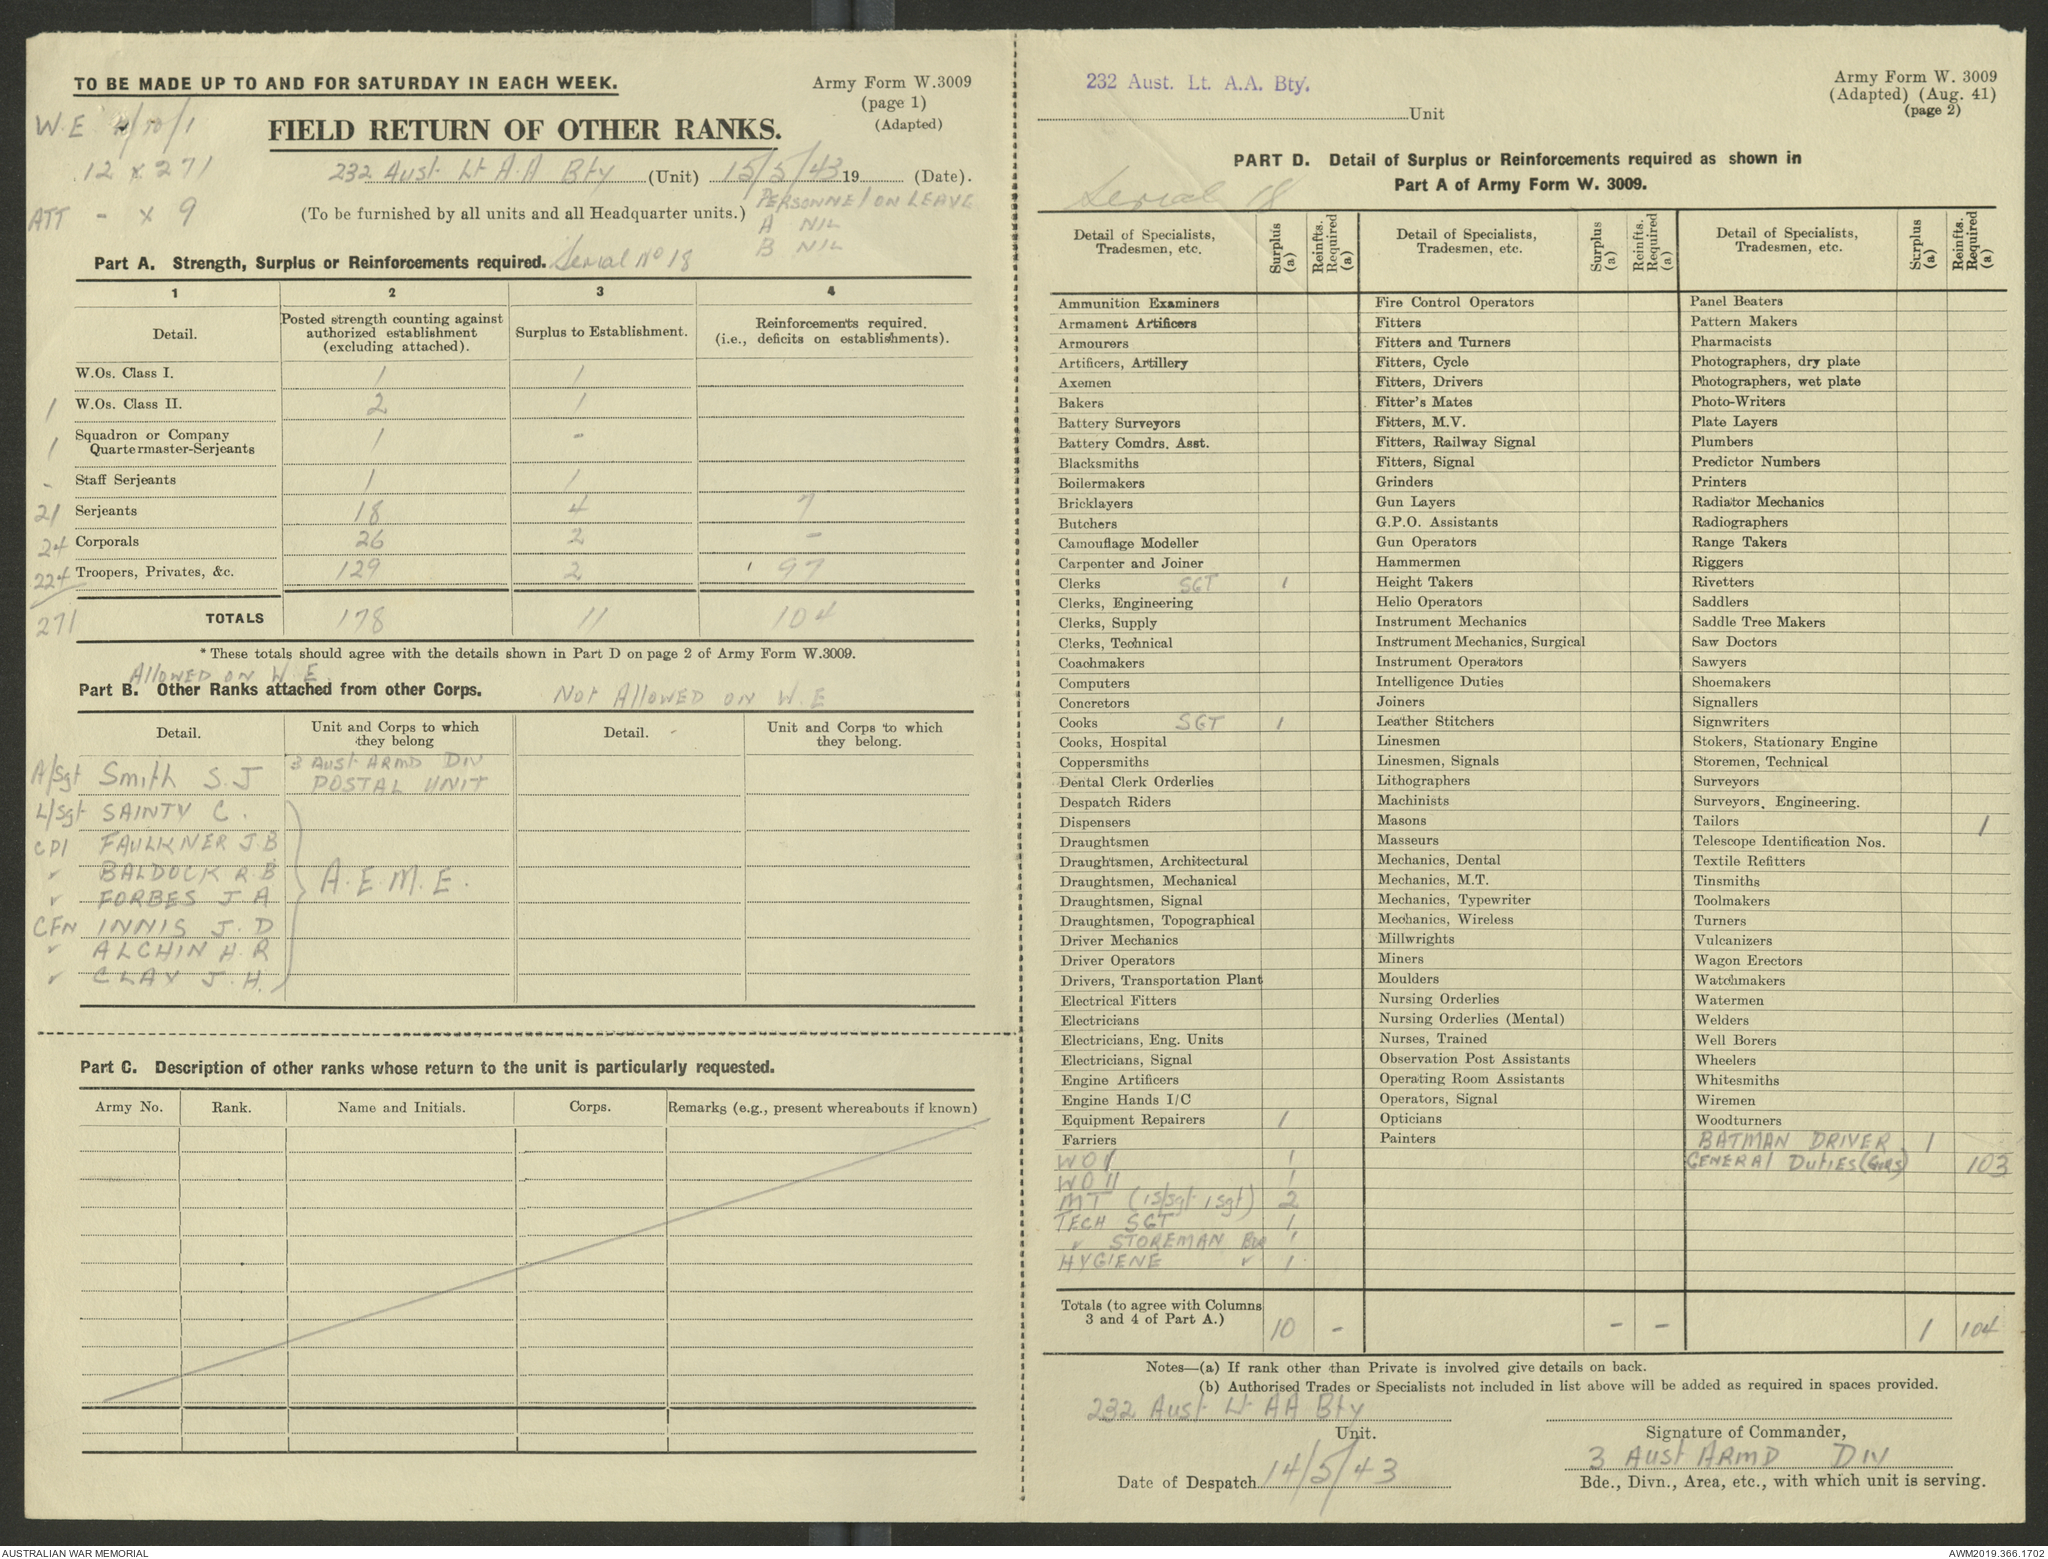 TO BE MADE UP TO AND FOR SATURDAY IN EACH WEEK.
Army Form W.3009
(page 1)
(Adapted)
W.E /10/1
12 x 271
ATT - x 9
FIELD RETURN OF OTHER RANKS.
232 Aust Lt A.A Bty (Unit) 15/5/43 19 (Date).
(To be furnished by all units and all Headquarter units.)
PERSONNEL ON LEAVE
A NIL
B NIL
Part A. Strength, Surplus or Reinforcements required. Serial No 18
1 2 3 4
Detail.
Posted strength counting against authorized establishment (excluding attached).
Surplus to Establishment.
Reinforcements required. (i.e., deficits on establishments).
W.Os. Class I. 1 1
1 W.Os. Class II. 2 1
1 Squadron or Company Quartermaster-Serjeants 1 -
- Staff Serjeants 1 1
21 Serjeants 18 4 7
24 Corporals 26 2 -
224 Troopers, Privates, &c. 129 2 97
271 TOTALS 178 11 104
* These totals should agree with the details shown in Part D on page 2 of Army Form W.3009.
Allowed on W.E.
Part B. Other Ranks attached from other Corps.
Not Allowed on W.E
Detail.
Unit and Corps to which they belong
Detail. -
Unit and Corps to which they belong.
A/Sgt Smith S.J 3 Aust ARMD DIV POSTAL UNIT
L/Sgt SAINTY C.
CPl FAULKNER J.B
✓ BALDOCK R.B
✓ FORBES J.A
CFN INNIS J.D
✓ ALCHIN H.R
✓ CLAY J.H.
A.E.M.E.
Part C. Description of other ranks whose return to the unit is particularly requested.
Army No. Rank. Name and Initials. Corps. Remarks (e.g., present whereabouts if known)
232 Aust. Lt. A.A. Bty.
Unit
Army Form W. 3009
(Adapted) (Aug. 41)
(page 2)
PART D. Detail of Surplus or Reinforcements required as shown in
Part A of Army Form W. 3009.
Serial 18
Detail of Specialists, Tradesmen, etc.
Surplus (a)
Reinfts. Required (a)
Detail of Specialists, Tradesmen, etc.
Surplus (a)
Reinfts. Required (a)
Detail of Specialists, Tradesmen, etc.
Surplus (a)
Reinfts. Required (a)
Ammunition Examiners
Armament Artificers
Armourers
Artificers, Artillery
Axemen
Bakers
Battery Surveyors
Battery Comdrs. Asst.
Blacksmiths
Boilermakers
Bricklayers
Butchers
Camouflage Modeller
Carpenter and Joiner
Clerks SGT 1
Clerks, Engineering
Clerks, Supply
Clerks, Technical
Coachmakers
Computers
Concretors
Cooks SGT 1
Cooks, Hospital
Coppersmiths
Dental Clerk Orderlies
Despatch Riders
Dispensers
Draughtsmen
Draughtsmen, Architectural
Draughtsmen, Mechanical
Draughtsmen, Signal
Draughtsmen, Topographical
Driver Mechanics
Driver Operators
Drivers, Transportation Plant
Electrical Fitters
Electricians
Electricians, Eng. Units
Electricians, Signal
Engine Artificers
Engine Hands I/C
Equipment Repairers 1
Farriers
WO I 1
WO II 1
MT (1 S/Sgt 1 Sgt) 2
TECH SGT 1
✓ STOREMAN Bdr 1
HYGIENE ✓ 1
Fire Control Operators
Fitters
Fitters and Turners
Fitters, Cycle
Fitters, Drivers
Fitter's Mates
Fitters, M.V.
Fitters, Railway Signal
Fitters, Signal
Grinders
Gun Layers
G.P.O. Assistants
Gun Operators
Hammermen
Height Takers
Helio Operators
Instrument Mechanics
Instrument Mechanics, Surgical
Instrument Operators
Intelligence Duties
Joiners
Leather Stitchers
Linesmen
Linesmen, Signals
Lithographers
Machinists
Masons
Masseurs
Mechanics, Dental
Mechanics, M.T.
Mechanics, Typewriter
Mechanics, Wireless
Millwrights
Miners
Moulders
Nursing Orderlies
Nursing Orderlies (Mental)
Nurses, Trained
Observation Post Assistants
Operating Room Assistants
Operators, Signal
Opticians
Painters
Panel Beaters
Pattern Makers
Pharmacists
Photographers, dry plate
Photographers, wet plate
Photo-Writers
Plate Layers
Plumbers
Predictor Numbers
Printers
Radiator Mechanics
Radiographers
Range Takers
Riggers
Rivetters
Saddlers
Saddle Tree Makers
Saw Doctors
Sawyers
Shoemakers
Signallers
Signwriters
Stokers, Stationary Engine
Storemen, Technical
Surveyors
Surveyors, Engineering.
Tailors 1
Telescope Identification Nos.
Textile Refitters
Tinsmiths
Toolmakers
Turners
Vulcanizers
Wagon Erectors
Watchmakers
Watermen
Welders
Well Borers
Wheelers
Whitesmiths
Wiremen
Woodturners
BATMAN DRIVER. 1
GENERAL DUTIES (GNRS) 103
Totals (to agree with Columns 3 and 4 of Part A.) 10 - - - 1 104
Notes—(a) If rank other than Private is involved give details on back.
(b) Authorised Trades or Specialists not included in list above will be added as required in spaces provided.
232 Aust Lt AA Bty
Unit.
Signature of Commander,
3 Aust ARMD DIV
Date of Despatch 14/5/43
Bde., Divn., Area, etc., with which unit is serving.
AUSTRALIAN WAR MEMORIAL
AWM2019.366.1702